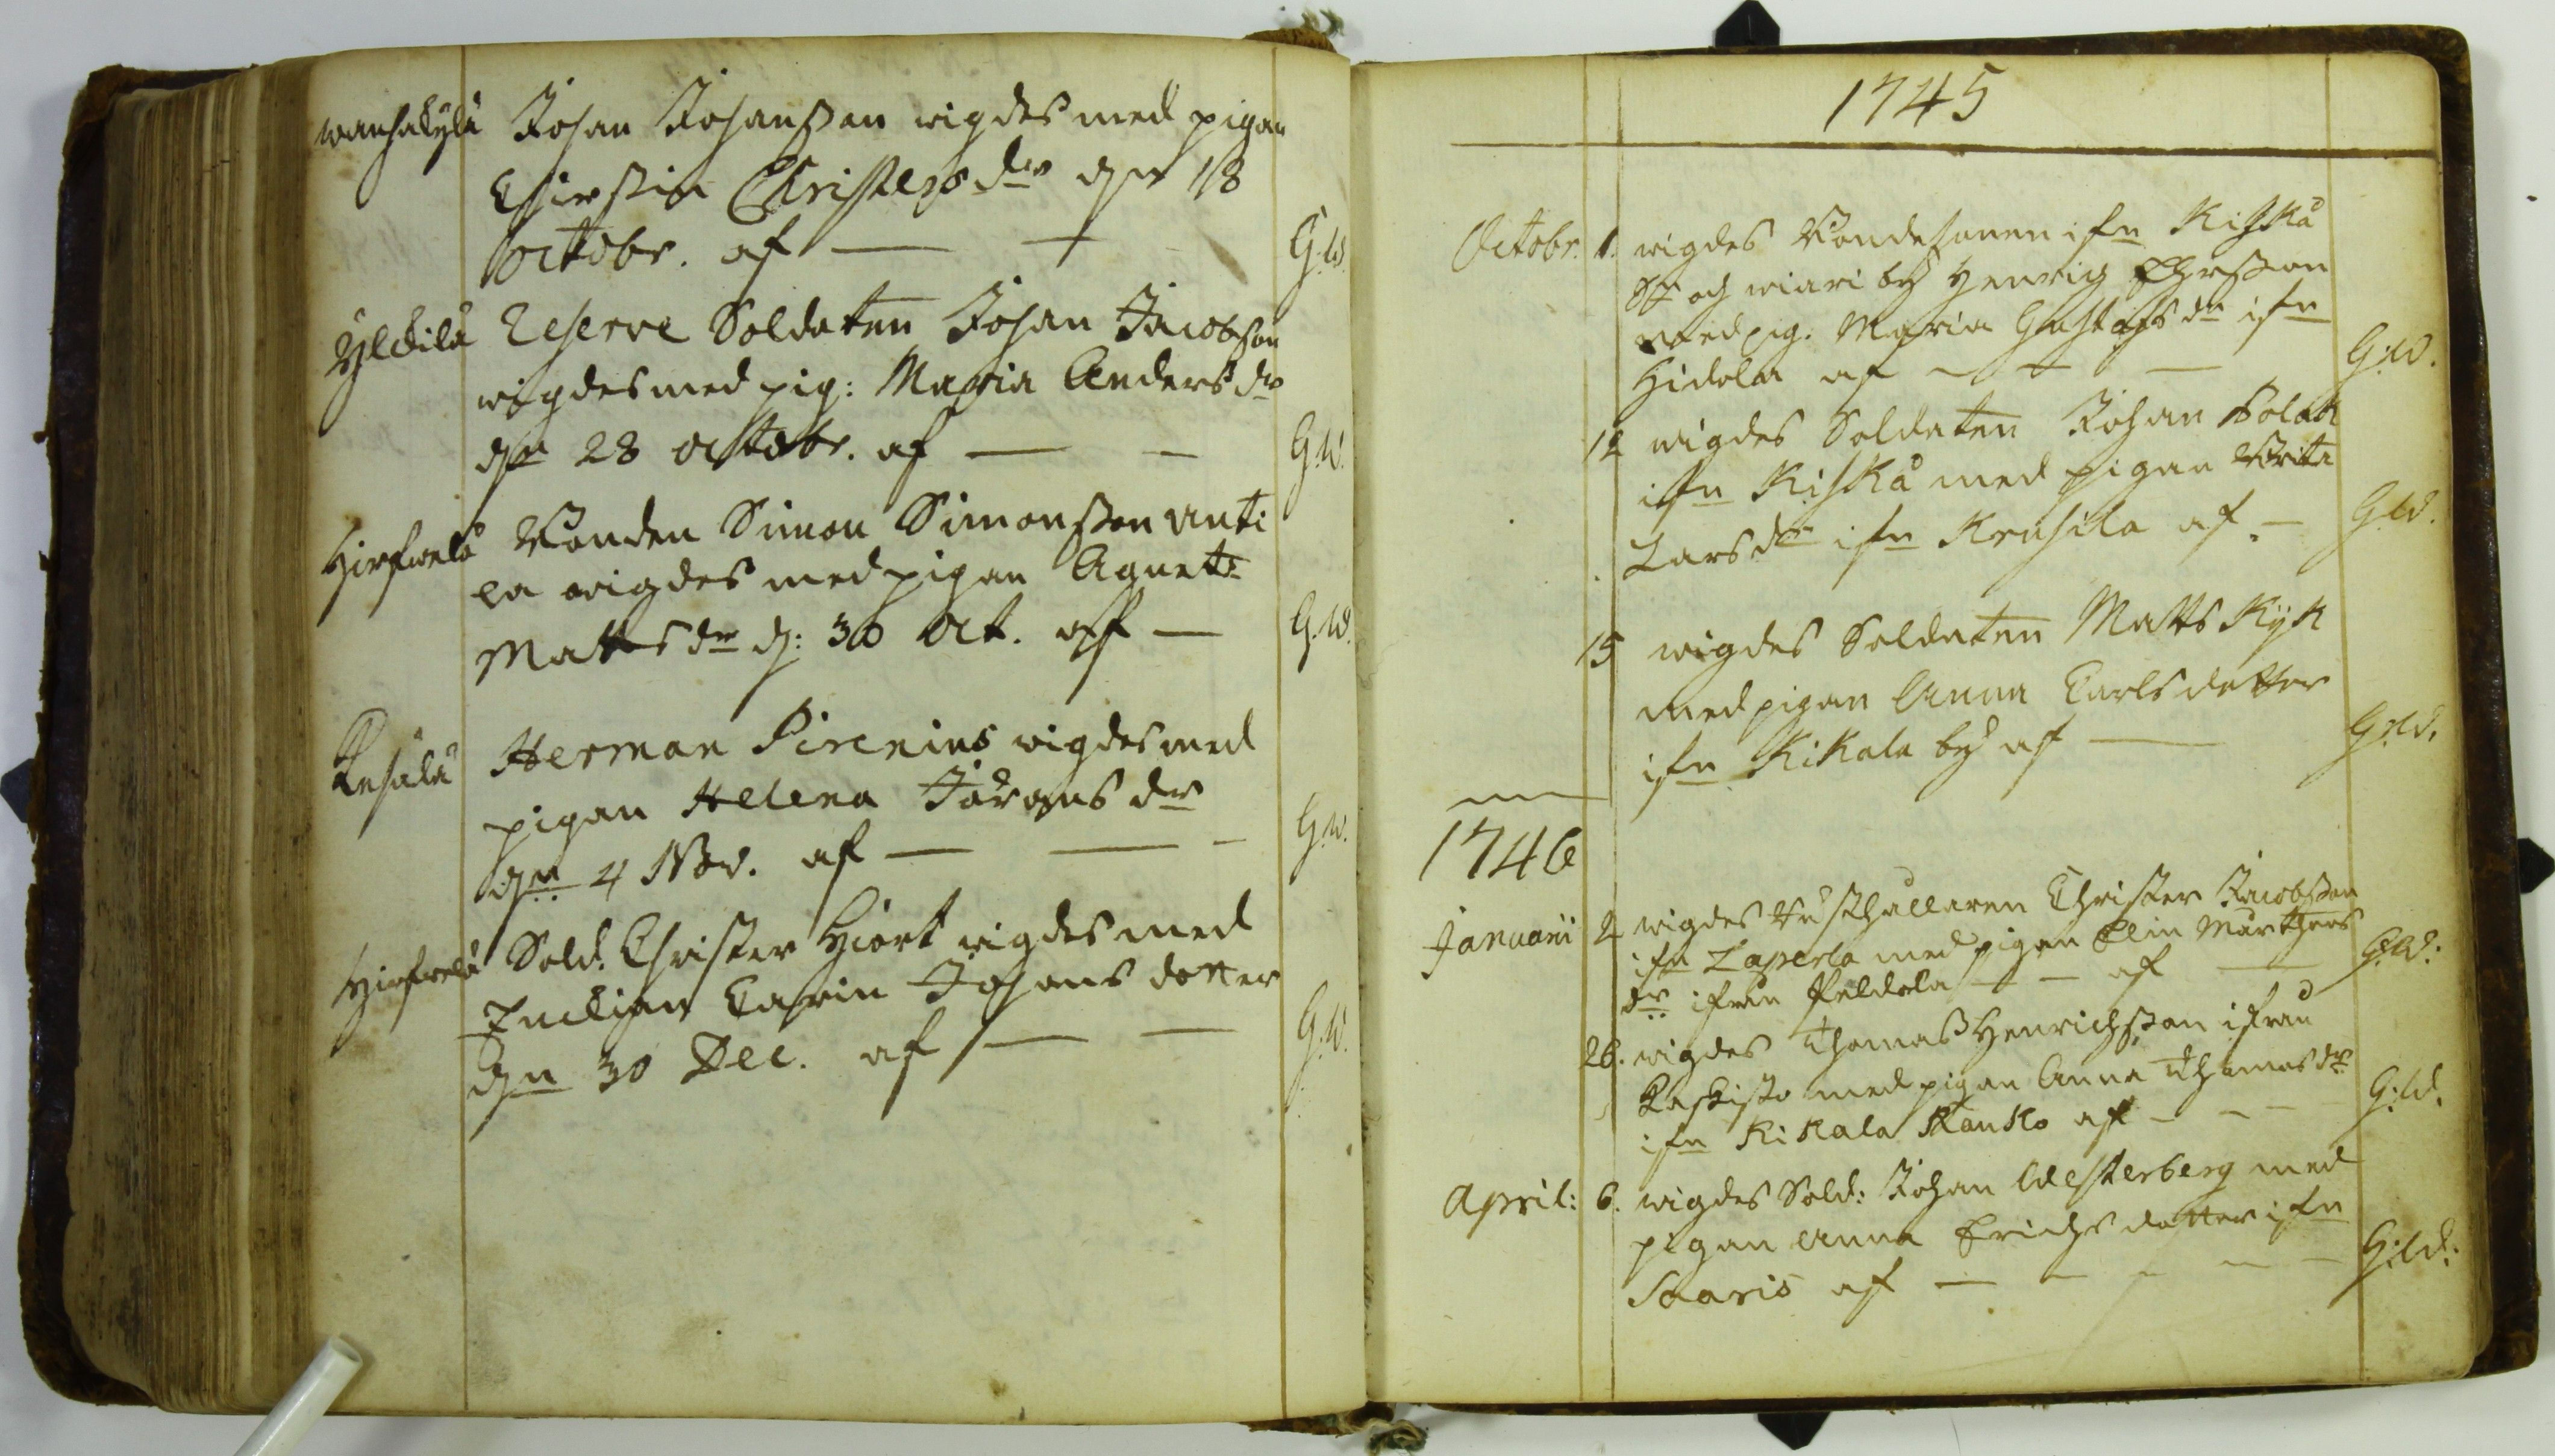 Wanhakylä Johan Johansson wigdes med pigan
Chirstin Christersdr den 18
octobr. af — — G.W.
Yldilä Reserve Soldaten Johan Jacobson
wigdes med pig: Maria Andersdr
dn 28 octobr. af — — G.W.
Hirfwelä Bonden Simon Simonsson Anti
la wigdes med pigan Agneta
Mattsdr d: 30 oct. af — G.W.
Herman Pirenius wigdes med
pigan Helena Jöransdr
dn 4 Nov. af — — — G.W.
Hirfwelä Sold. Christer Hjort wigdes med
Carin Johans dotter
dn 30 Dec. af — — G.W.
1745
Octobr. 1. wigdes Bondesonen ifn Kiskå
Sn och wiari by Henrig
med pig. Maria Gustafsdr ifn
Hidola af — — — G.W.
12 wigdes Soldaten Johan Polak
ifn Kiskå med pigan Brita
Larsdr ifn Krusila af. — G.W.
15 wigdes Soldaten Matts Kyk
med pigan Anna Carlsdotter
ifn Kikala by af — G.W.
1746
Januarii 2 wigdes Rusthållaren Christer Jacobsson
ifn Laperla med pigan Elin Mårthens
dr ifrån Peldola — — af — G.W.
26. wigdes Thomas Henrichsson ifrån
Kaskisto med pigan Anna Thomasdr
ifn Kikala Stanko af — — — G.W.
April: 6. wigdes Sold: Johan Westerberg med
pigan Anna Erichsdotter ifn
Saaris af — — — — G.W.